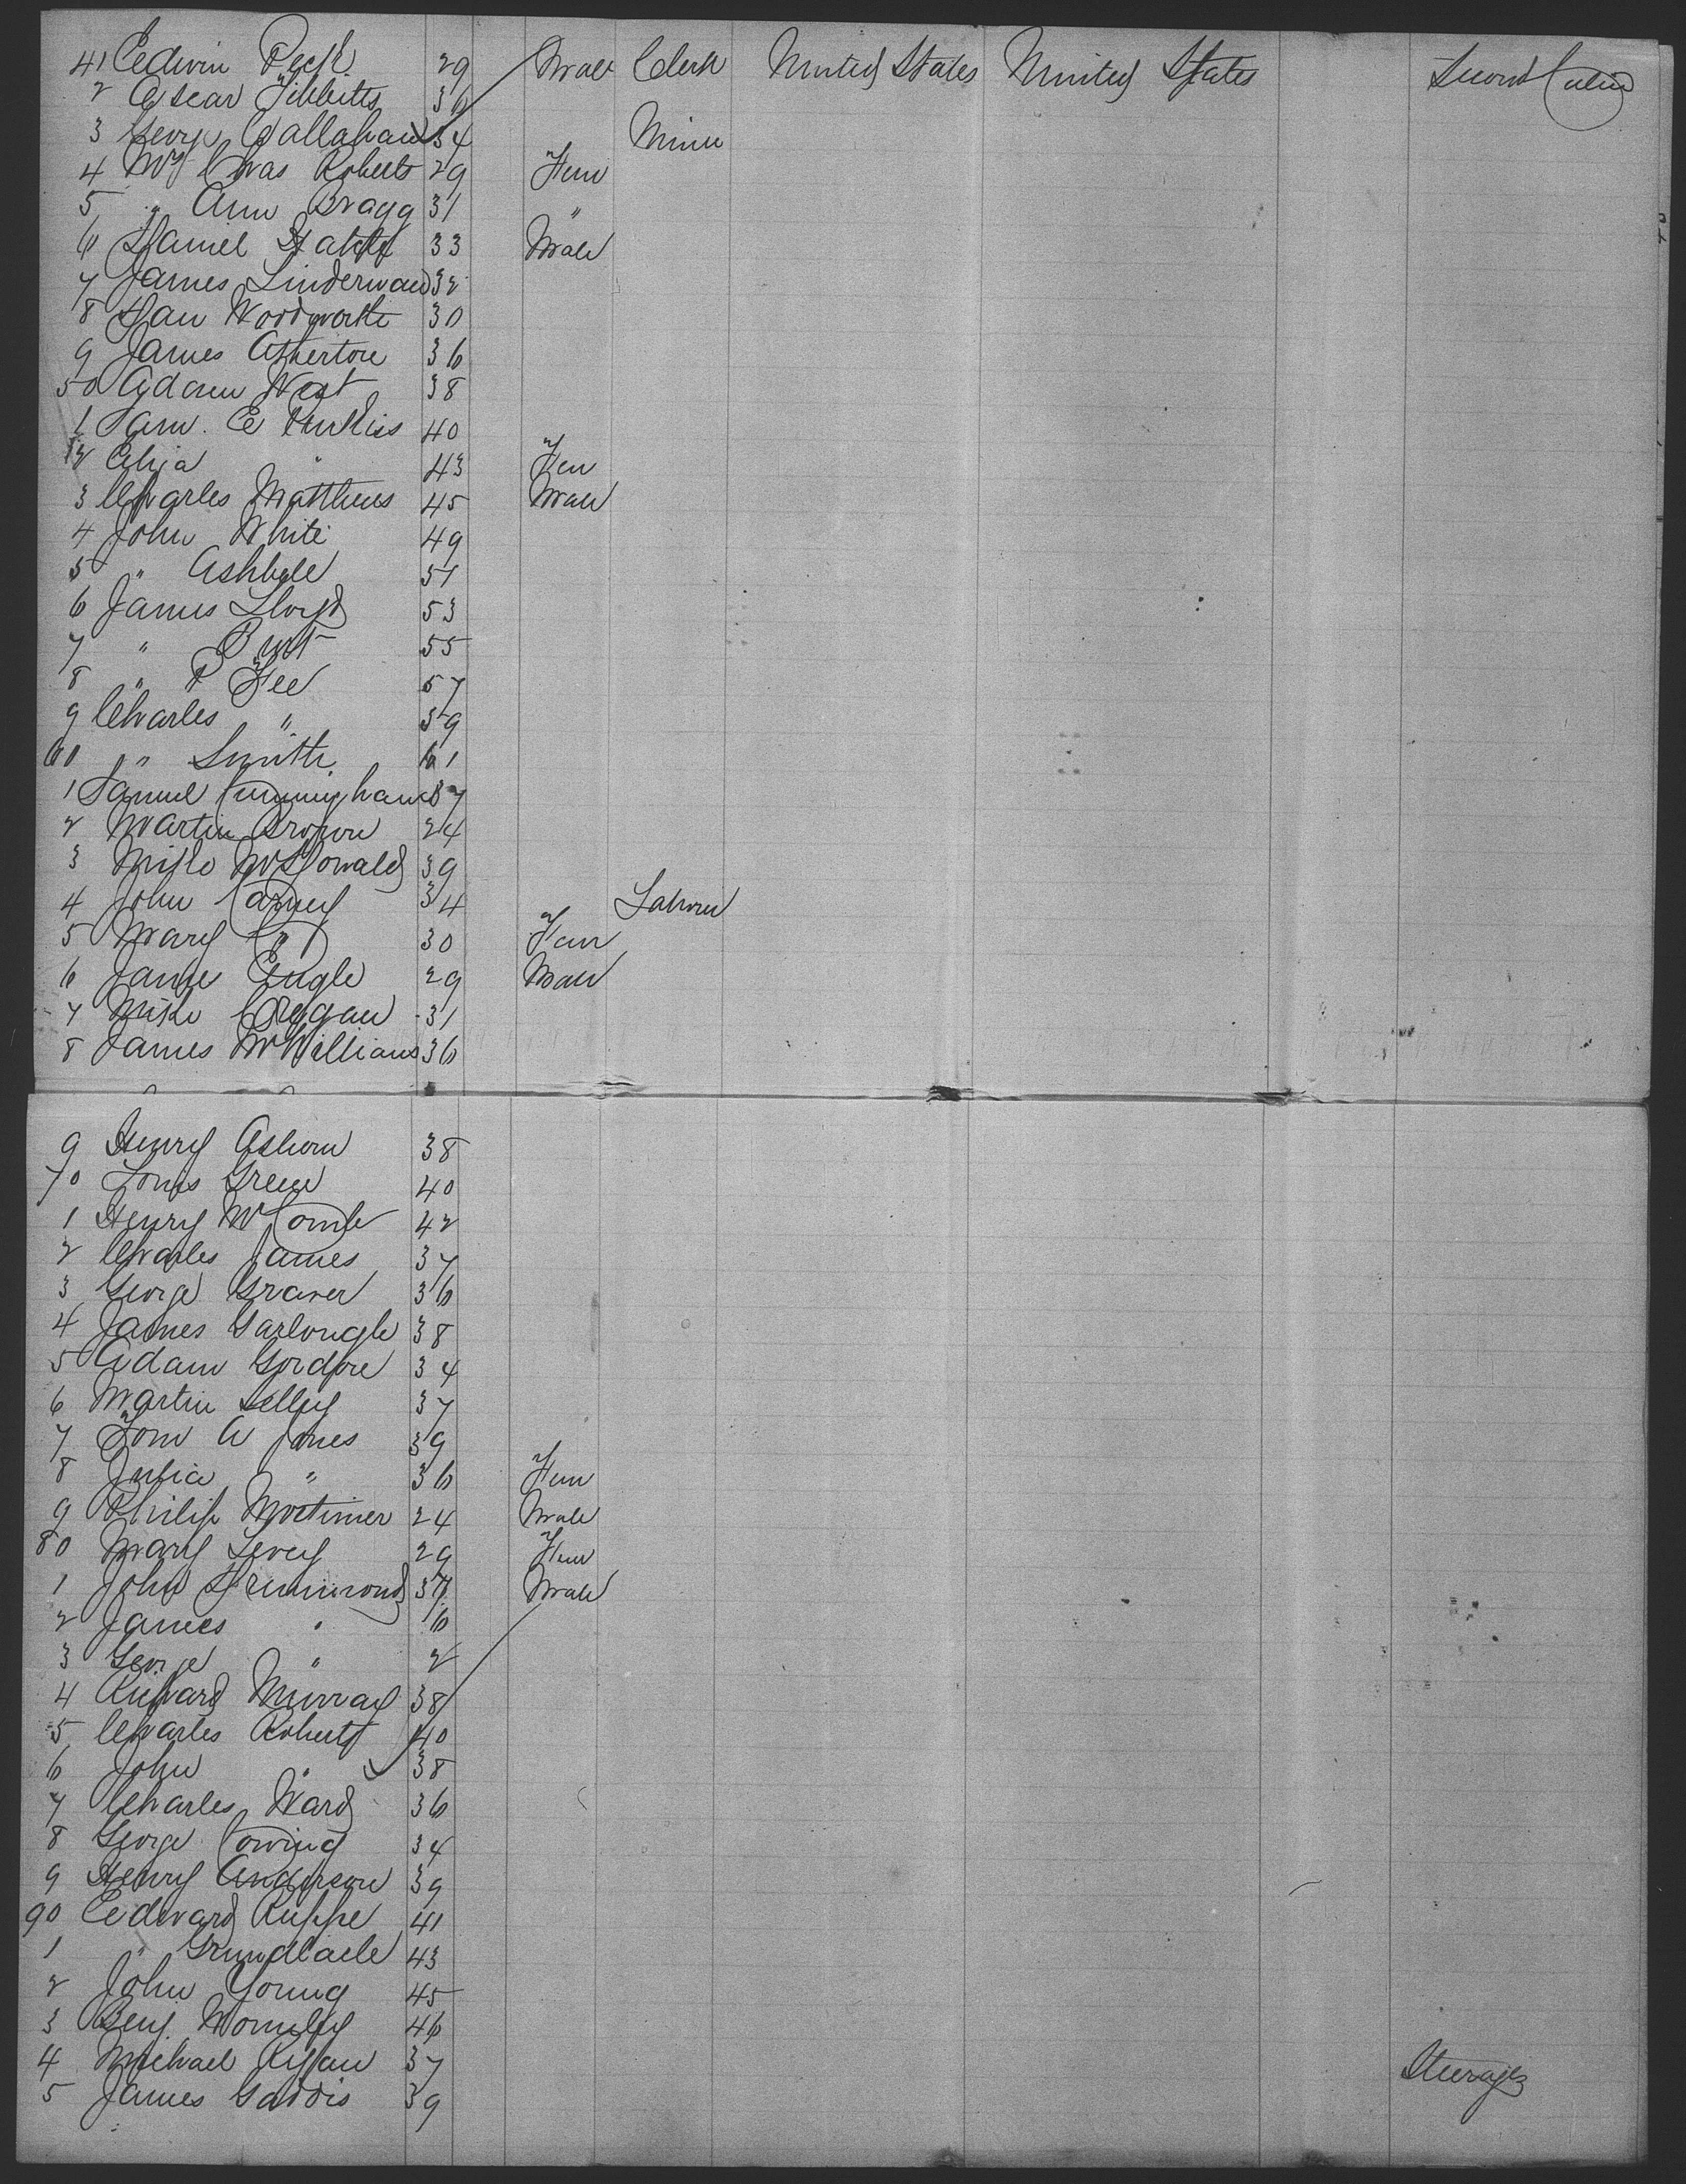 41 Edwin Peck 29 Male Clerk United States United States Second Cabin
2 Oscar Tibbitts 36
3 George Callahan 34 Miner
4 Mrs Chas Roberts 29 Fem
5 " Ann Bragg 31 "
6 Daniel 33 Male
7 James 32
8 Dan Woodworth 30
9 James Atherton 36
50 Adam West 38
1 Sam. E 40
2 Eliza " 43 Fem
3 Charles Matthews 45 Male
4 John White 49
5 " 51
6 James Lloyd 53
7 " 55
8 " P Fee 57
9 Charles " 59
60 " Smith 61
1 Samuel Cunningham 37
2 Martin Brown 24
3 McDonald 39
4 John Carney 34 Laborer
5 Mary " 30 Fem
6 James Engle 29 Male
7 Mike Cregan 31
8 James McWilliams 36
9 Henry Asborn 38
70 Louis Green 40
1 Henry McComb 42
2 Charles James 37
3 George Graver 36
4 James Garlough 38
5 Adam Gordon 34
6 Martin Selby 37
7 Tom A Jones 39
8 Julia " 36 Fem
9 Philip Mortimer 24 Male
80 Mary Levey 29 Fem
1 John Drummond 37 Male
2 James " 6
3 George " 2
4 Richard Murray 38
5 Charles Roberts 40
6 John " 38
7 Charles Ward 36
8 George Cowing 34
9 Henry Anderson 39
90 Edward Ruppe 41
1 " 43
2 John Young 45
3 Benj. Wormley 46
4 Michael Ryan 37 Steerage
5 James Gaddis 39